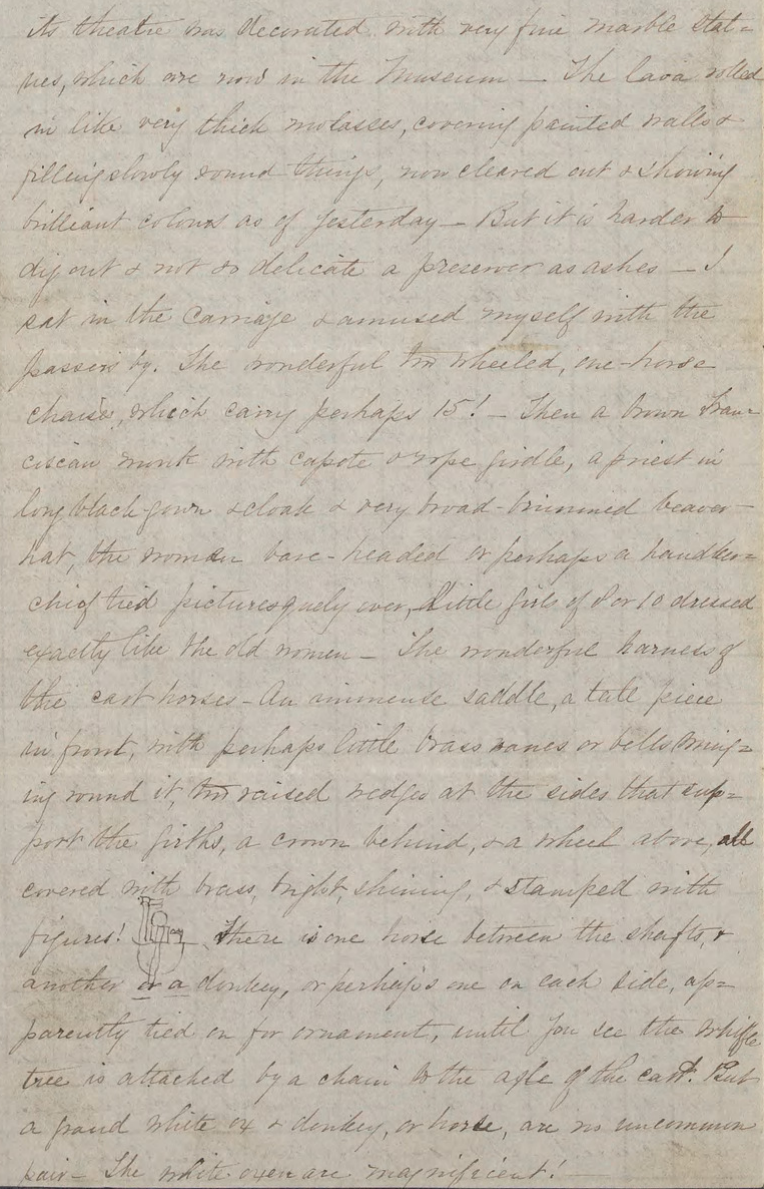 its theatre was decorated with very fine marble stat=
ues, which are now in the Museum — The lava rolled
in like very thick molasses, covering painted walls &
filling slowly round things, now cleared out & showing
brilliant colours as of yesterday — But it is harder to
dig out & not so delicate a preserver as ashes — I
sat in the carriage & amused myself with the
passers by. The wonderful two wheeled, one-horse
chaise, which carry perhaps 15! — Then a brown Fran=
ciscan monk with capote & rope girdle, a priest in
long black gown & cloak & very broad-brimmed beaver—
hat, the women bare-headed or perhaps a handker=
chief tied picturesquely over, Little girls of 8 or 10 dressed
exactly like the old women — The wonderful harness of
the cart horses — An immense saddle, a tall piece
in front, with perhaps little brass vanes or bells swing=
ing round it, two raised wedges at the sides that sup=
port the girths, a crown behind, & a wheel above, all
covered with brass, bright, shining, & stamped with
figures! There is one horse between the shafts, &
another or a donkey, or perhaps one on each side, ap=
parently tied on for ornament, until you see the whiffle
tree is attached by a chain to the axle of the cart. But
a grand white ox & donkey, or horse, are no uncommon
pair — The white oxen are magnificent! —